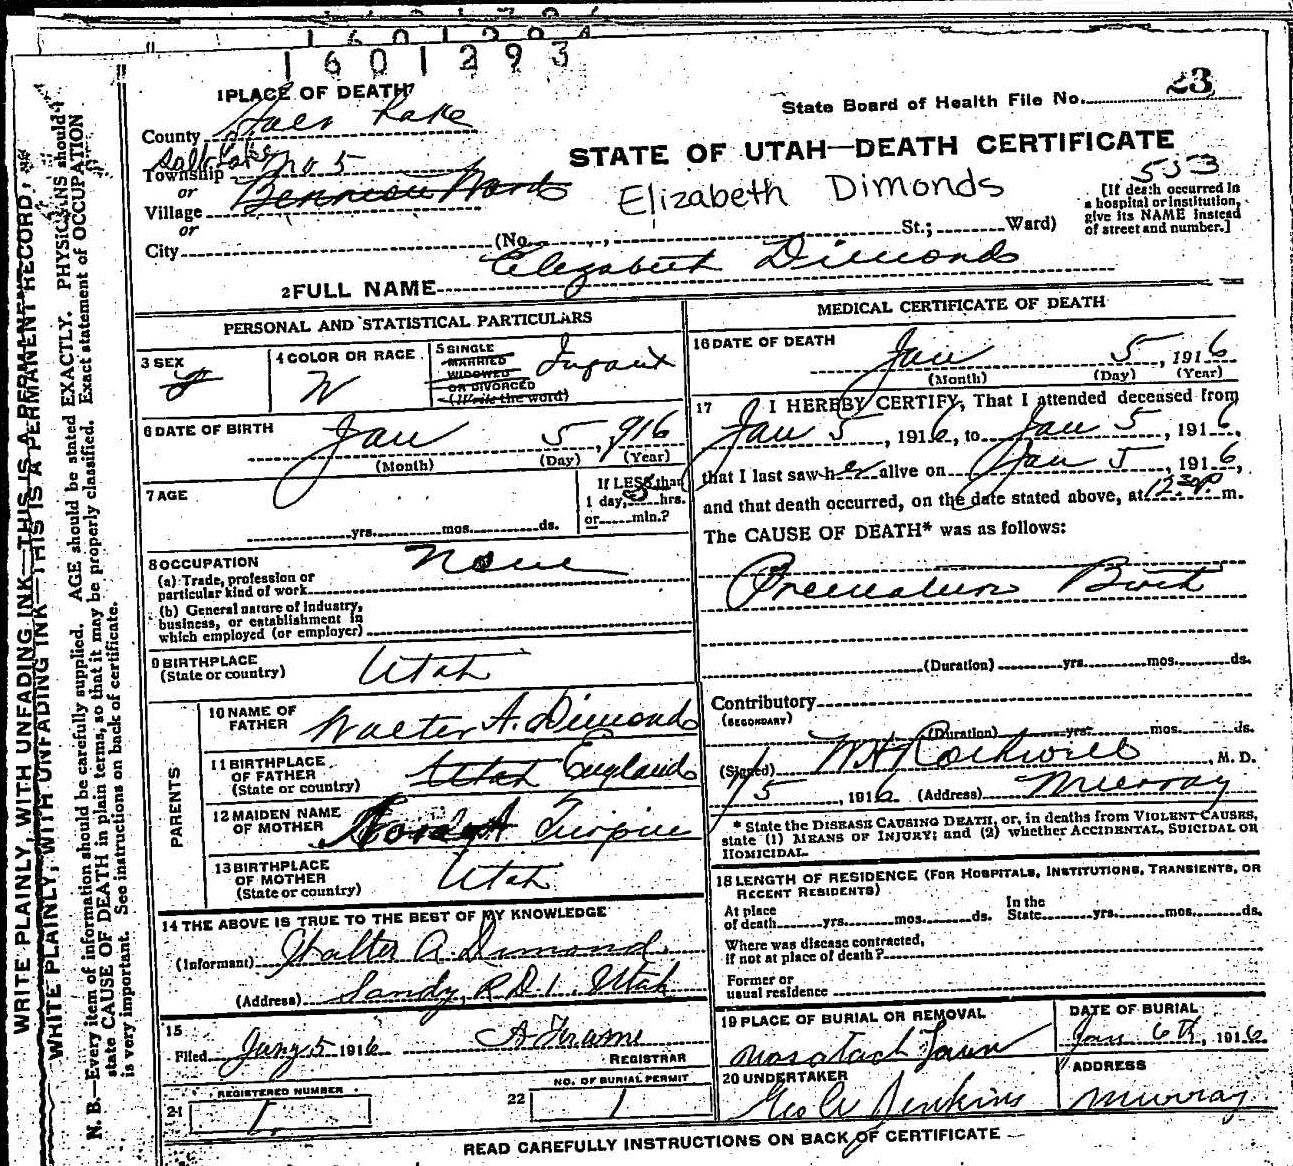 1601293
1 PLACE OF DEATH
State Board of Health File No. 23
County Salt Lake
STATE OF UTAH—DEATH CERTIFICATE
553
Salt Lake
Township No 5
or
Village Bennion Ward
or
City
Elizabeth Dimonds
[If death occurred in
a hospital or institution,
give its NAME instead
of street and number.]
(No. , St.; Ward)
2 FULL NAME Elizabeth Dimonds
PERSONAL AND STATISTICAL PARTICULARS
3 SEX f
4 COLOR OR RACE W
5 SINGLE
MARRIED
WIDOWED
OR DIVORCED
(Write the word)
Infant
6 DATE OF BIRTH
Jan 5, 1916
(Month) (Day) (Year)
7 AGE
yrs. mos. ds.
If LESS than
1 day, hrs.
or min.?
8 OCCUPATION None
(a) Trade, profession or
particular kind of work
(b) General nature of industry,
business, or establishment in
which employed (or employer)
9 BIRTHPLACE
(State or country) Utah
PARENTS
10 NAME OF
FATHER Walter A. Dimond
11 BIRTHPLACE
OF FATHER
(State or country) Utah England
12 MAIDEN NAME
OF MOTHER Turpin
13 BIRTHPLACE
OF MOTHER
(State or country) Utah
14 THE ABOVE IS TRUE TO THE BEST OF MY KNOWLEDGE
(Informant) Walter A. Dimond
(Address) Sandy, R.D.1. Utah
15
Filed Jany 5 1916
REGISTRAR
21 REGISTERED NUMBER
1.
22 NO. OF BURIAL PERMIT
1
MEDICAL CERTIFICATE OF DEATH
16 DATE OF DEATH
Jan 5, 1916
(Month) (Day) (Year)
17 I HEREBY CERTIFY, That I attended deceased from
Jan 5, 1916, to Jan 5, 1916,
that I last saw her alive on Jan 5, 1916,
and that death occurred, on the date stated above, at 12 30 P m.
The CAUSE OF DEATH* was as follows:
Premature Birth
(Duration) yrs. mos. ds.
Contributory
(SECONDARY)
(Duration) yrs. mos. ds.
(Signed) W H Rockwell, M. D.
1/5, 1916 (Address) Murray
* State the DISEASE CAUSING DEATH, or, in deaths from VIOLENT CAUSES,
state (1) MEANS OF INJURY; and (2) whether ACCIDENTAL, SUICIDAL OR
HOMICIDAL.
18 LENGTH OF RESIDENCE (FOR HOSPITALS, INSTITUTIONS, TRANSIENTS, OR
RECENT RESIDENTS)
At place
of death yrs. mos. ds.
In the
State yrs. mos. ds.
Where was disease contracted,
if not at place of death?
Former or
usual residence
19 PLACE OF BURIAL OR REMOVAL
Wasatach Lawn
DATE OF BURIAL
Jan 6th, 1916.
20 UNDERTAKER
Geo W Jenkins
ADDRESS
Murray
READ CAREFULLY INSTRUCTIONS ON BACK OF CERTIFICATE
WRITE PLAINLY, WITH UNFADING INK—THIS IS A PERMANENT RECORD.
WRITE PLAINLY, WITH UNFADING INK—THIS IS A PERMANENT RECORD.
N. B.—Every item of information should be carefully supplied. AGE should be stated EXACTLY. PHYSICIANS should
state CAUSE OF DEATH in plain terms, so that it may be properly classified. Exact statement of OCCUPATION
is very important. See instructions on back of certificate.